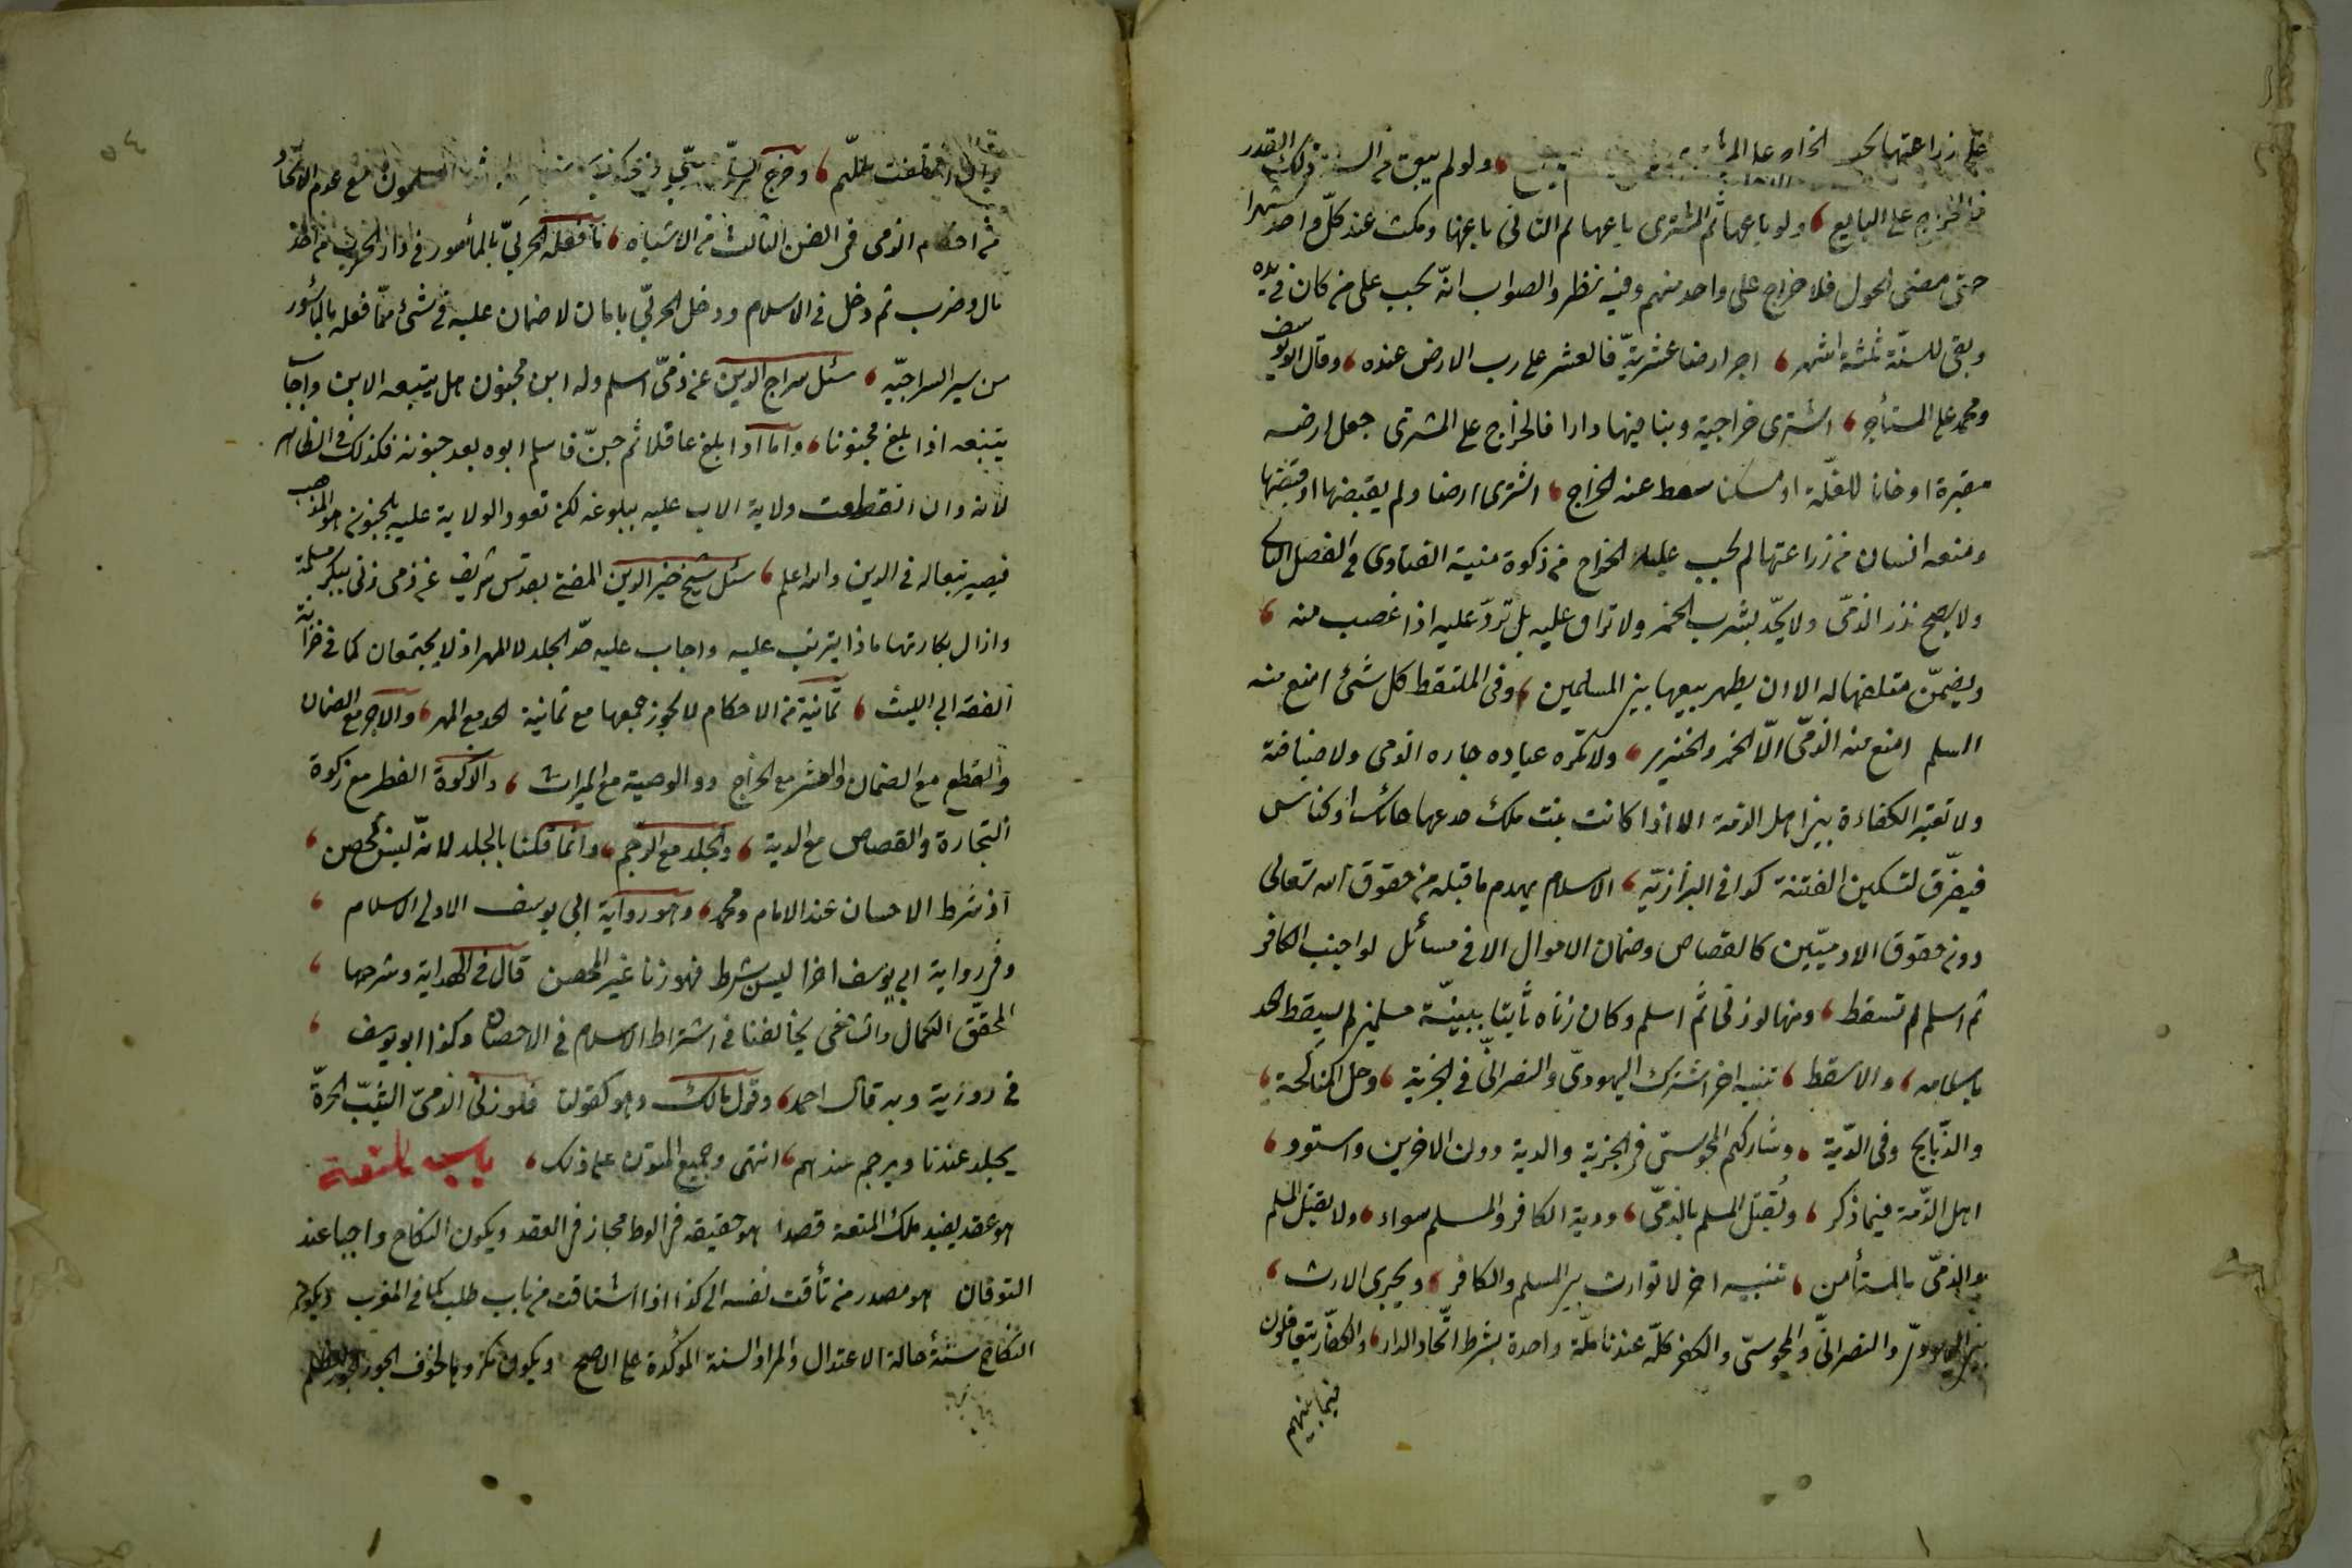 على زراعتها يجب الخراج على ولو لم يبق من السنة ذلك القدر
فالخراج على البايع ، ولو باعها ثم المشترى باعها ثم الثانى باعها ومكث عند كلّ واحد شهرا
حتى مضى الحول فلا خراج على واحد منهم وفيه نظر والصواب انّه يجب على من كان فى يده
وبقى للسنّة ثلثة اشهر ، اجر ارضا عشريّة فالعشر على رب الارض عنده ، وقال ابو يوسف
ومحمد على المستأجر ، اشترى خراجية وبنا فيها دارا فالخراج على المشترى جعل ارضه
مقبرة او خانا للغلّة او مسكنا سقط عنه الخراج ، اشترى ارضا ولم يقبضها او قبضها
ومنعه انسان من زراعتها لم يجب عليه الخراج من زكوة منية الفتاوى فى الفصل
ولا يصح نذر الذمّى ولا يحّد بشرب الخمر ولا تراق عليه بل تردّ عليه اذا غصب منه ،
ويضمّن متلفها له الا ان يظهر بيعها بين المسلمين ، وفى الملتقط كل شئ امنع منه
المسلم امنع منه الذمّى الّا الخمر والخنزير ، ولا تكره عياده جاره الذمى ولا ضيافة
ولا تعتبر الكفاءة بين اهل الذمة الا اذا كانت بنت ملك خدعها حائك او كناس
فيفرّق لتسكين الفتنة كذا فى البزازيّة ، الاسلام يهدم ما قبله من حقوق الله تعالى
دون حقوق الادميّين كالقصاص وضمان الاموال الا فى مسائل لو اجنب الكافر
ثم اسلم لم تسقط ، ومنها لو زنى ثم اسلم وكان زناه ثابتا ببينّة مسلمين لم يسقط الحد
باسلامه ، والا سقط ، تنبيه اخر اشترك اليهودىّ والنصرانىّ فى الجزية ، وحل المناكحة ،
والذّبايح وفى الدّية ، وشاركهم المجوسىّ فى الجزية والدية دون الاخرين واستوو ،
اهل الذّمة فيما ذكر ، ويُقتل المسلم بالذمّى ، ودية الكافر والمسلم سواء ، ولا يقتل المسلم
والذمّى بالمستأمن ، تنبيه اخر لا توارث بين المسلم والكافر ، ويجرى الارث ،
بين اليهودىّ والنصرانىّ والمجوسىّ والكفر كلّه عندنا ملّة واحدة بشرط اتّحاد الدار ، والكفّار يتعاقلون
فيما بينهم
وان اختلفت مللهم ، وخرج مع عدم الاتّحاد
من احكام الذمى فى الفن الثالث من الاشباه ، ما فعله الحربىّ بالمأسور فى دار الحرب من اخذ
مال وضرب ثم دخل فى الاسلام ودخل الحربىّ بامان لا ضمان عليه فى شئ ممّا فعله بالمأسور
من سير السراجيّه ، سئل سراج الدين عن ذمّى اسلم وله ابن مجنون هل يتبعه الابن واجاب
يتبعه اذا بلغ مجنونا ، واما اذا بلغ عاقلا ثم جنّ فاسلم ابوه بعد جنونه فكذلك فى الظاهر
لانه وان انقطعت ولاية الاب عليه ببلوغه لكن تعود الولاية عليه بجنونه هو المذهب
فيصير تبعا له فى الدين والله اعلم ، سئل شيخ خير الدين المفتى بقدس شريف عن ذمى زنى ببكر مسلمة
وازال بكارتها ماذا يترتب عليه واجاب عليه حدّ الجلد لا المهر اذ لا يجتمعان كما فى خزانة
الفقه ابى الليث ، ثمانية من الاحكام لا يجوز جمعها مع ثمانية الحد مع المهر ، والاجر مع الضمان
والقطع مع الضمان والعشر مع الخراج ووالوصية مع الميراث ، والزكوة الفطر مع زكوة
التجارة والقصاص مع الدية ، والجلد مع الرّجم ، وانّما قلنا بالجلد لانّه ليس بمحصن ،
اذ شرط الاحسان عند الامام ومحمد ، وهو رواية ابى يوسف الاولى الاسلام ،
وفى رواية ابى يوسف اخرا ليس بشرط فهو زنا غير المحصن قال فى الهداية وشرحها ،
المحقّق الكمال والشافعى يخالفنا فى اشتراط الاسلام فى الاحصان وكذا ابو يوسف ،
فى رواية وبه قال احمد ، وقول مالك وهو كقولنا فلو زنى الذمىّ الثيّب الحرّة
يجلد عندنا ويرجم عندهم ، انتهى وجميع المتون على ذلك ، باب المتعة
هو عقد يفيد ملك المتعة قصدا هو حقيقه فى الوطا مجاز فى العقد ويكون النكاح واجبا عند
التوقان هو مصدر من تأقت نفسه الى كذا اذا اشتاقت من باب طلب كما فى المغرب ويكون
النكاح سنّة حالة الاعتدال والمراد السنة المؤكدة على الاصح ويكون مكروها لخوف الجور